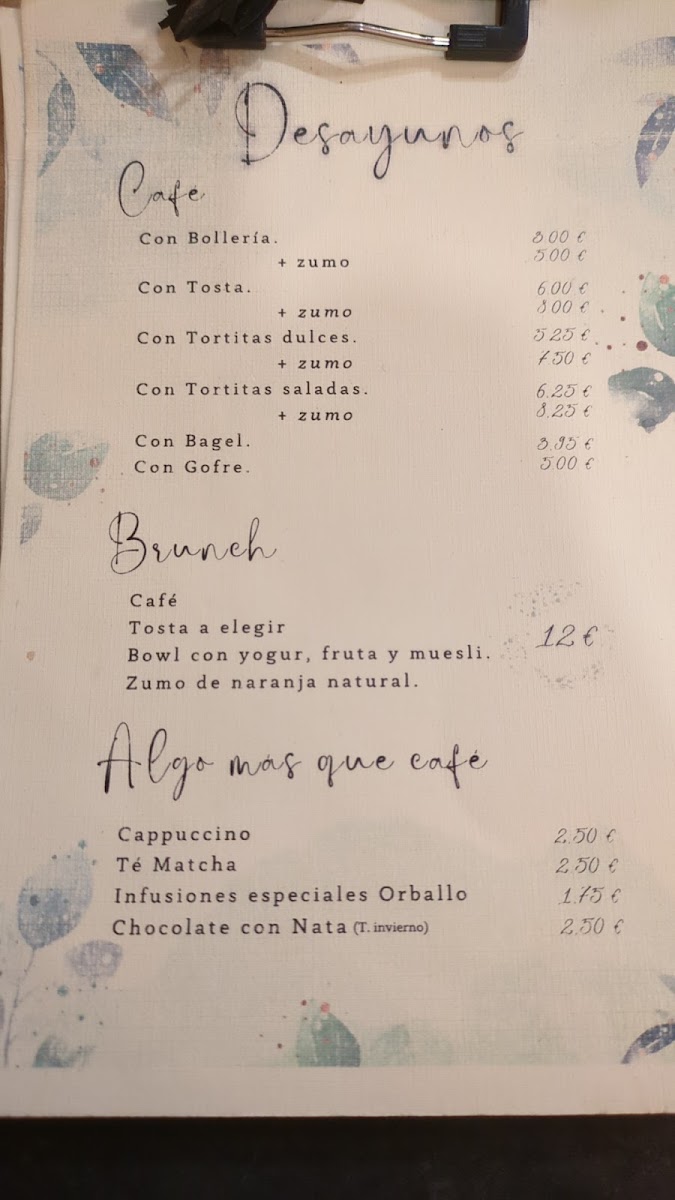 Desayunos
Café
Con Bollería. 3.00 €
+ zumo 5.00 €
Con Tosta. 6.00 €
+ zumo 8.00 €
Con Tortitas dulces. 5.25 €
+ zumo 7.50 €
Con Tortitas saladas. 6.25 €
+ zumo 8.25 €
Con Bagel. 3.95 €
Con Gofre. 5.00 €
Brunch
Café
Tosta a elegir
Bowl con yogur, fruta y muesli. 12 €
Zumo de naranja natural.
Algo más que café
Cappuccino 2,50 €
Té Matcha 2,50 €
Infusiones especiales Orballo 1.75 €
Chocolate con Nata (T. invierno) 2,50 €